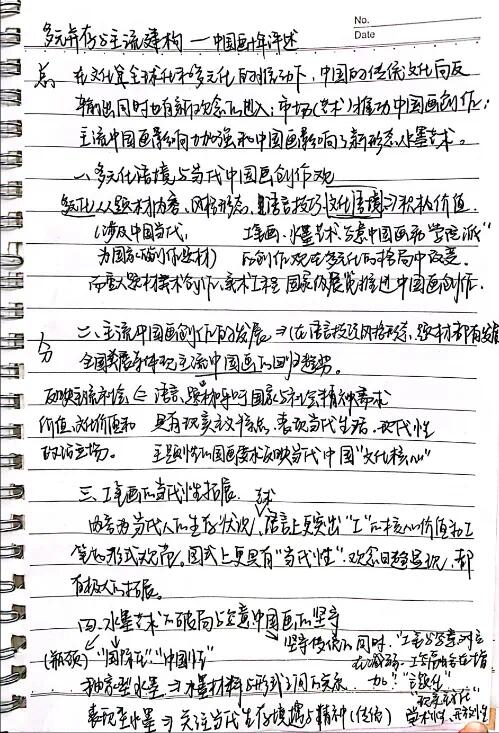 No.
Date
多元并存与主流建构——中国画年评述
总 在文化全球化和多元化的推动下,中国的传统文化向反
输出同时也有新观念的进入;市场(艺术)推动中国画创作;
主流中国画影响力加强和中国画影响了新形态水墨艺术。
一、多元化语境与当代中国画创作观
多元化从题材内容、风格形态、语言技巧文化情境⇒积极价值
(涉及中国当代, 工笔画·水墨艺术·写意中国画和“学院派”
为国家的创作题材) 的创作观在多元化的格局中改变.
而重大题材美术创作、美术工程 国家级展览推进中国画创作.
分 二、主流中国画创作的发展⇒(在语言技巧风格形态、题材都有发展
全国美展 体现主流中国画的回归趋势。
反映主流社会 ⇐ 语言、题材 国家与社会精神需求
价值、文化价值和 具有现实主义特点、表现当代生活、现代性
政治立场。 主题性的国画艺术反映当代中国“文化核心”
三、工笔画的当代性拓展. 艺术
内容为当代人的生存状况、语言上更突出“工”的核心价值和工
笔的形式规范。图式上更具有“当代性”.观念日趋显现,都
有极大的拓展。
四、水墨艺术的破局与写意中国画的坚守
(瓶颈)“国际化”“中国性” 坚守传统的同时,“工笔与写意”对立
抽象型水墨⇒水墨材料与形式之间的关系
表现型水墨⇒关注当代生存境遇与精神(传统) 学术性、开放性